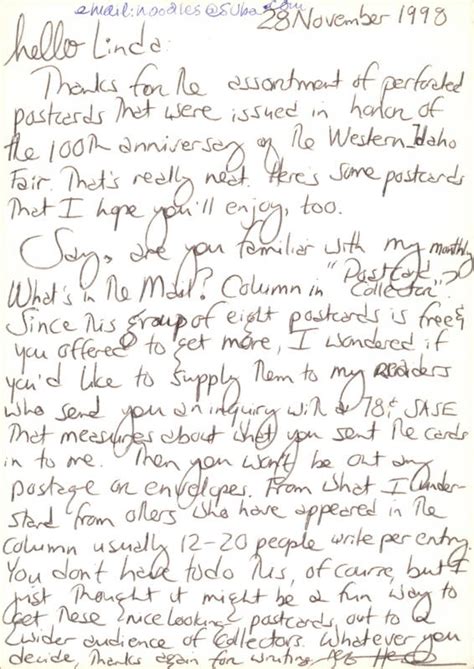 email: noodles@suba.com
28 November 1998
hello Linda:
Thanks for the assortment of perforated
postcards that were issued in honor of
the 100th anniversary of the Western Idaho
Fair. That's really neat. Here's some postcards
that I hope you'll enjoy, too.
Say, are you familiar with my monthly
What's in the Mail? Column in "Postcard
Collector".
Since this group of eight postcards is free &
you offered to get more, I wondered if
you'd like to supply them to my readers
who send you an inquiry with a 78¢ SASE
that measures about what you sent the cards
in to me. Then you won't be out any
postage or envelopes. From what I under-
stand from others who have appeared in the
column usually 12-20 people write per entry.
You don't have to do this, of course, but I
just thought it might be a fun way to
get these nice looking postcards out to a
wider audience of collectors. Whatever you
decide, thanks again for writing.